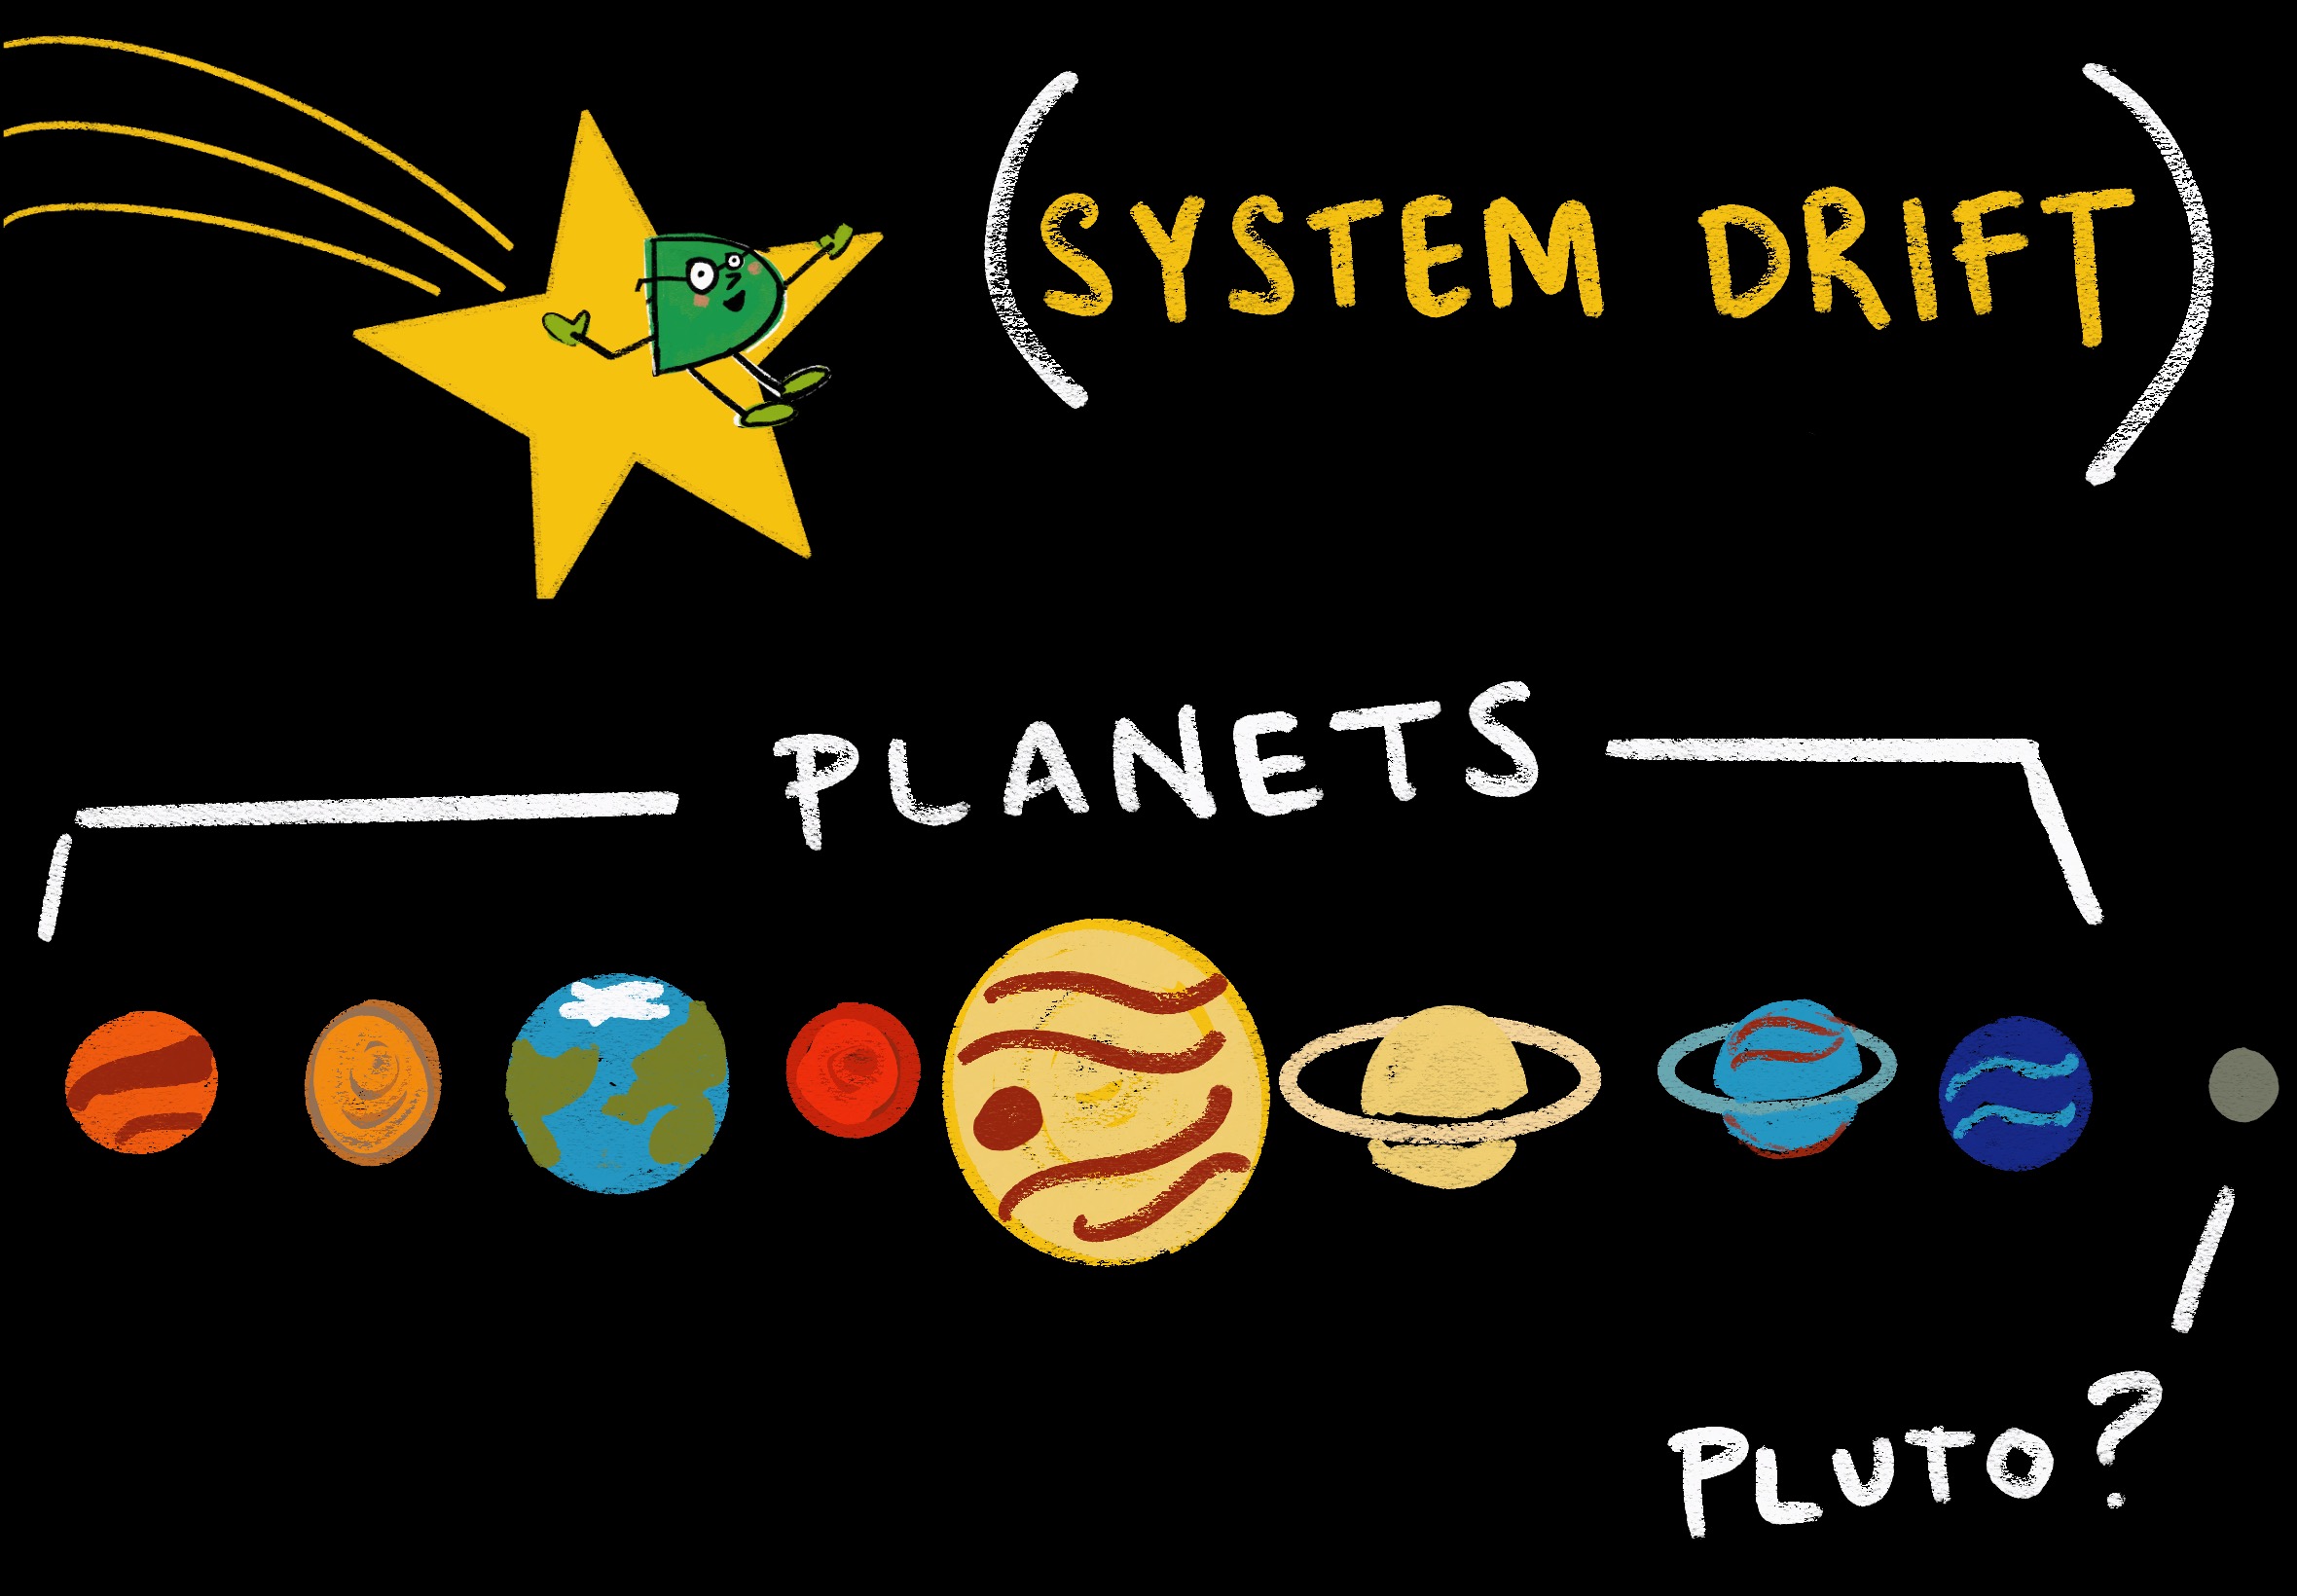 (SYSTEM DRIFT)
PLANETS
PLUTO?